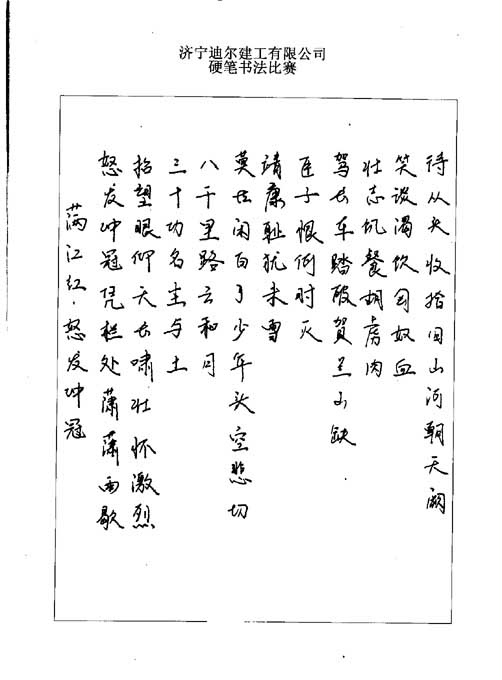 济宁迪尔建工有限公司
硬笔书法比赛
满江红·怒发冲冠
怒发冲冠凭栏处萧萧雨歇
抬望眼仰天长啸壮怀激烈
三十功名尘与土
八千里路云和月
莫等闲白了少年头空悲切
靖康耻犹未雪
臣子恨何时灭
驾长车踏破贺兰山缺
壮志饥餐胡虏肉
笑谈渴饮匈奴血
待从头收拾旧山河朝天阙